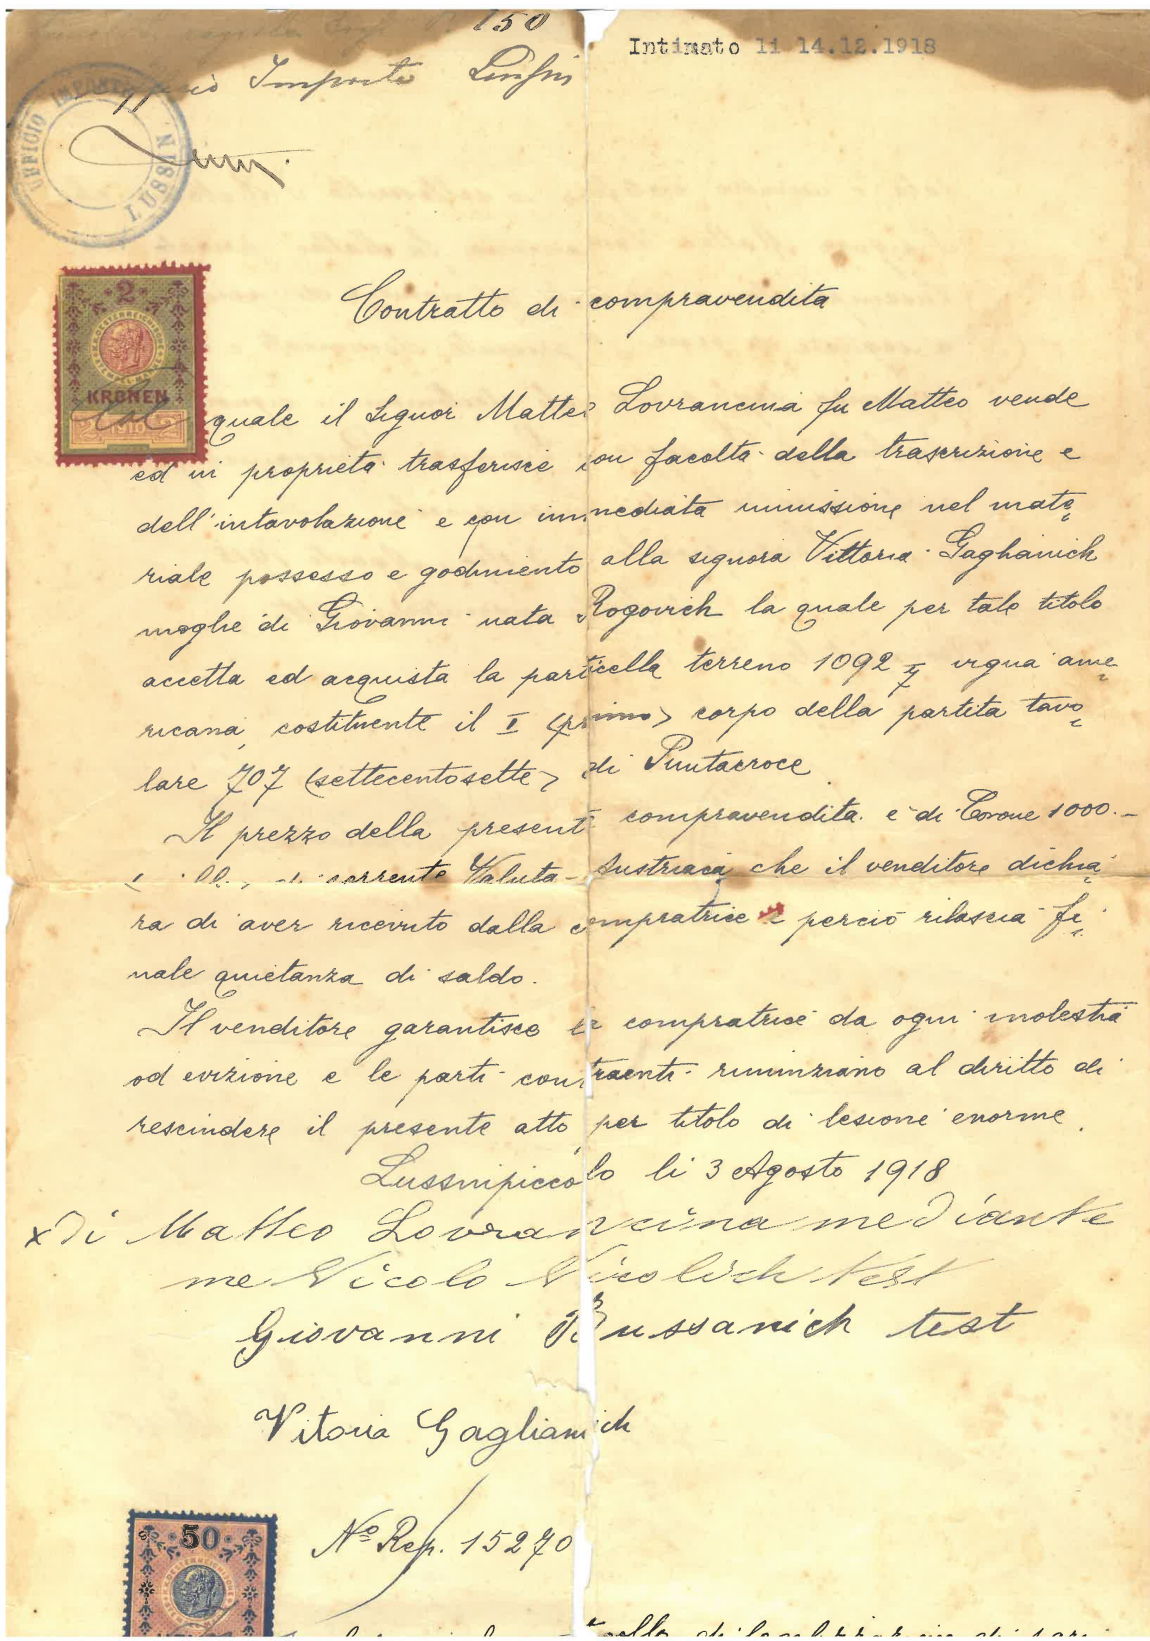 150
Intimato li 14.12.1918
Imposte Lussin
UFFICIO IMPOSTE LUSSIN
Contratto di compravendita
2
KRONEN
1910
quale il Signor Matteo Lovrancina fu Matteo vende
ed in proprietà trasferisce con facoltà della trascrizione e
dell'intavolazione e con immediata immissione nel mate
riale possesso e godimento alla signora Vittoria Gaglianich
moglie di Giovanni nata Rogovich la quale per tale titolo
accetta ed acquista la particella terreno 1092 vigna ame
ricana, costituente il I (primo) corpo della partita tavo
lare 707 (settecentosette) di Puntacroce.
Il prezzo della presente compravendita è di Corone 1000.-
corrente Valuta Austriaca che il venditore dichia
ra di aver ricevuto dalla compratrice e perciò rilascia fi
nale quietanza di saldo.
Il venditore garantisce la compratrice da ogni molestia
od evizione e le parti contraenti rinunziano al diritto di
rescindere il presente atto per titolo di lesione enorme.
Lussinpiccolo li 3 Agosto 1918
x Di Matteo Lovrancina mediante
me Nicolo Nicolich test
Giovanni Bussanich test
Vitoria Gaglianich
50
No Rep. 15270